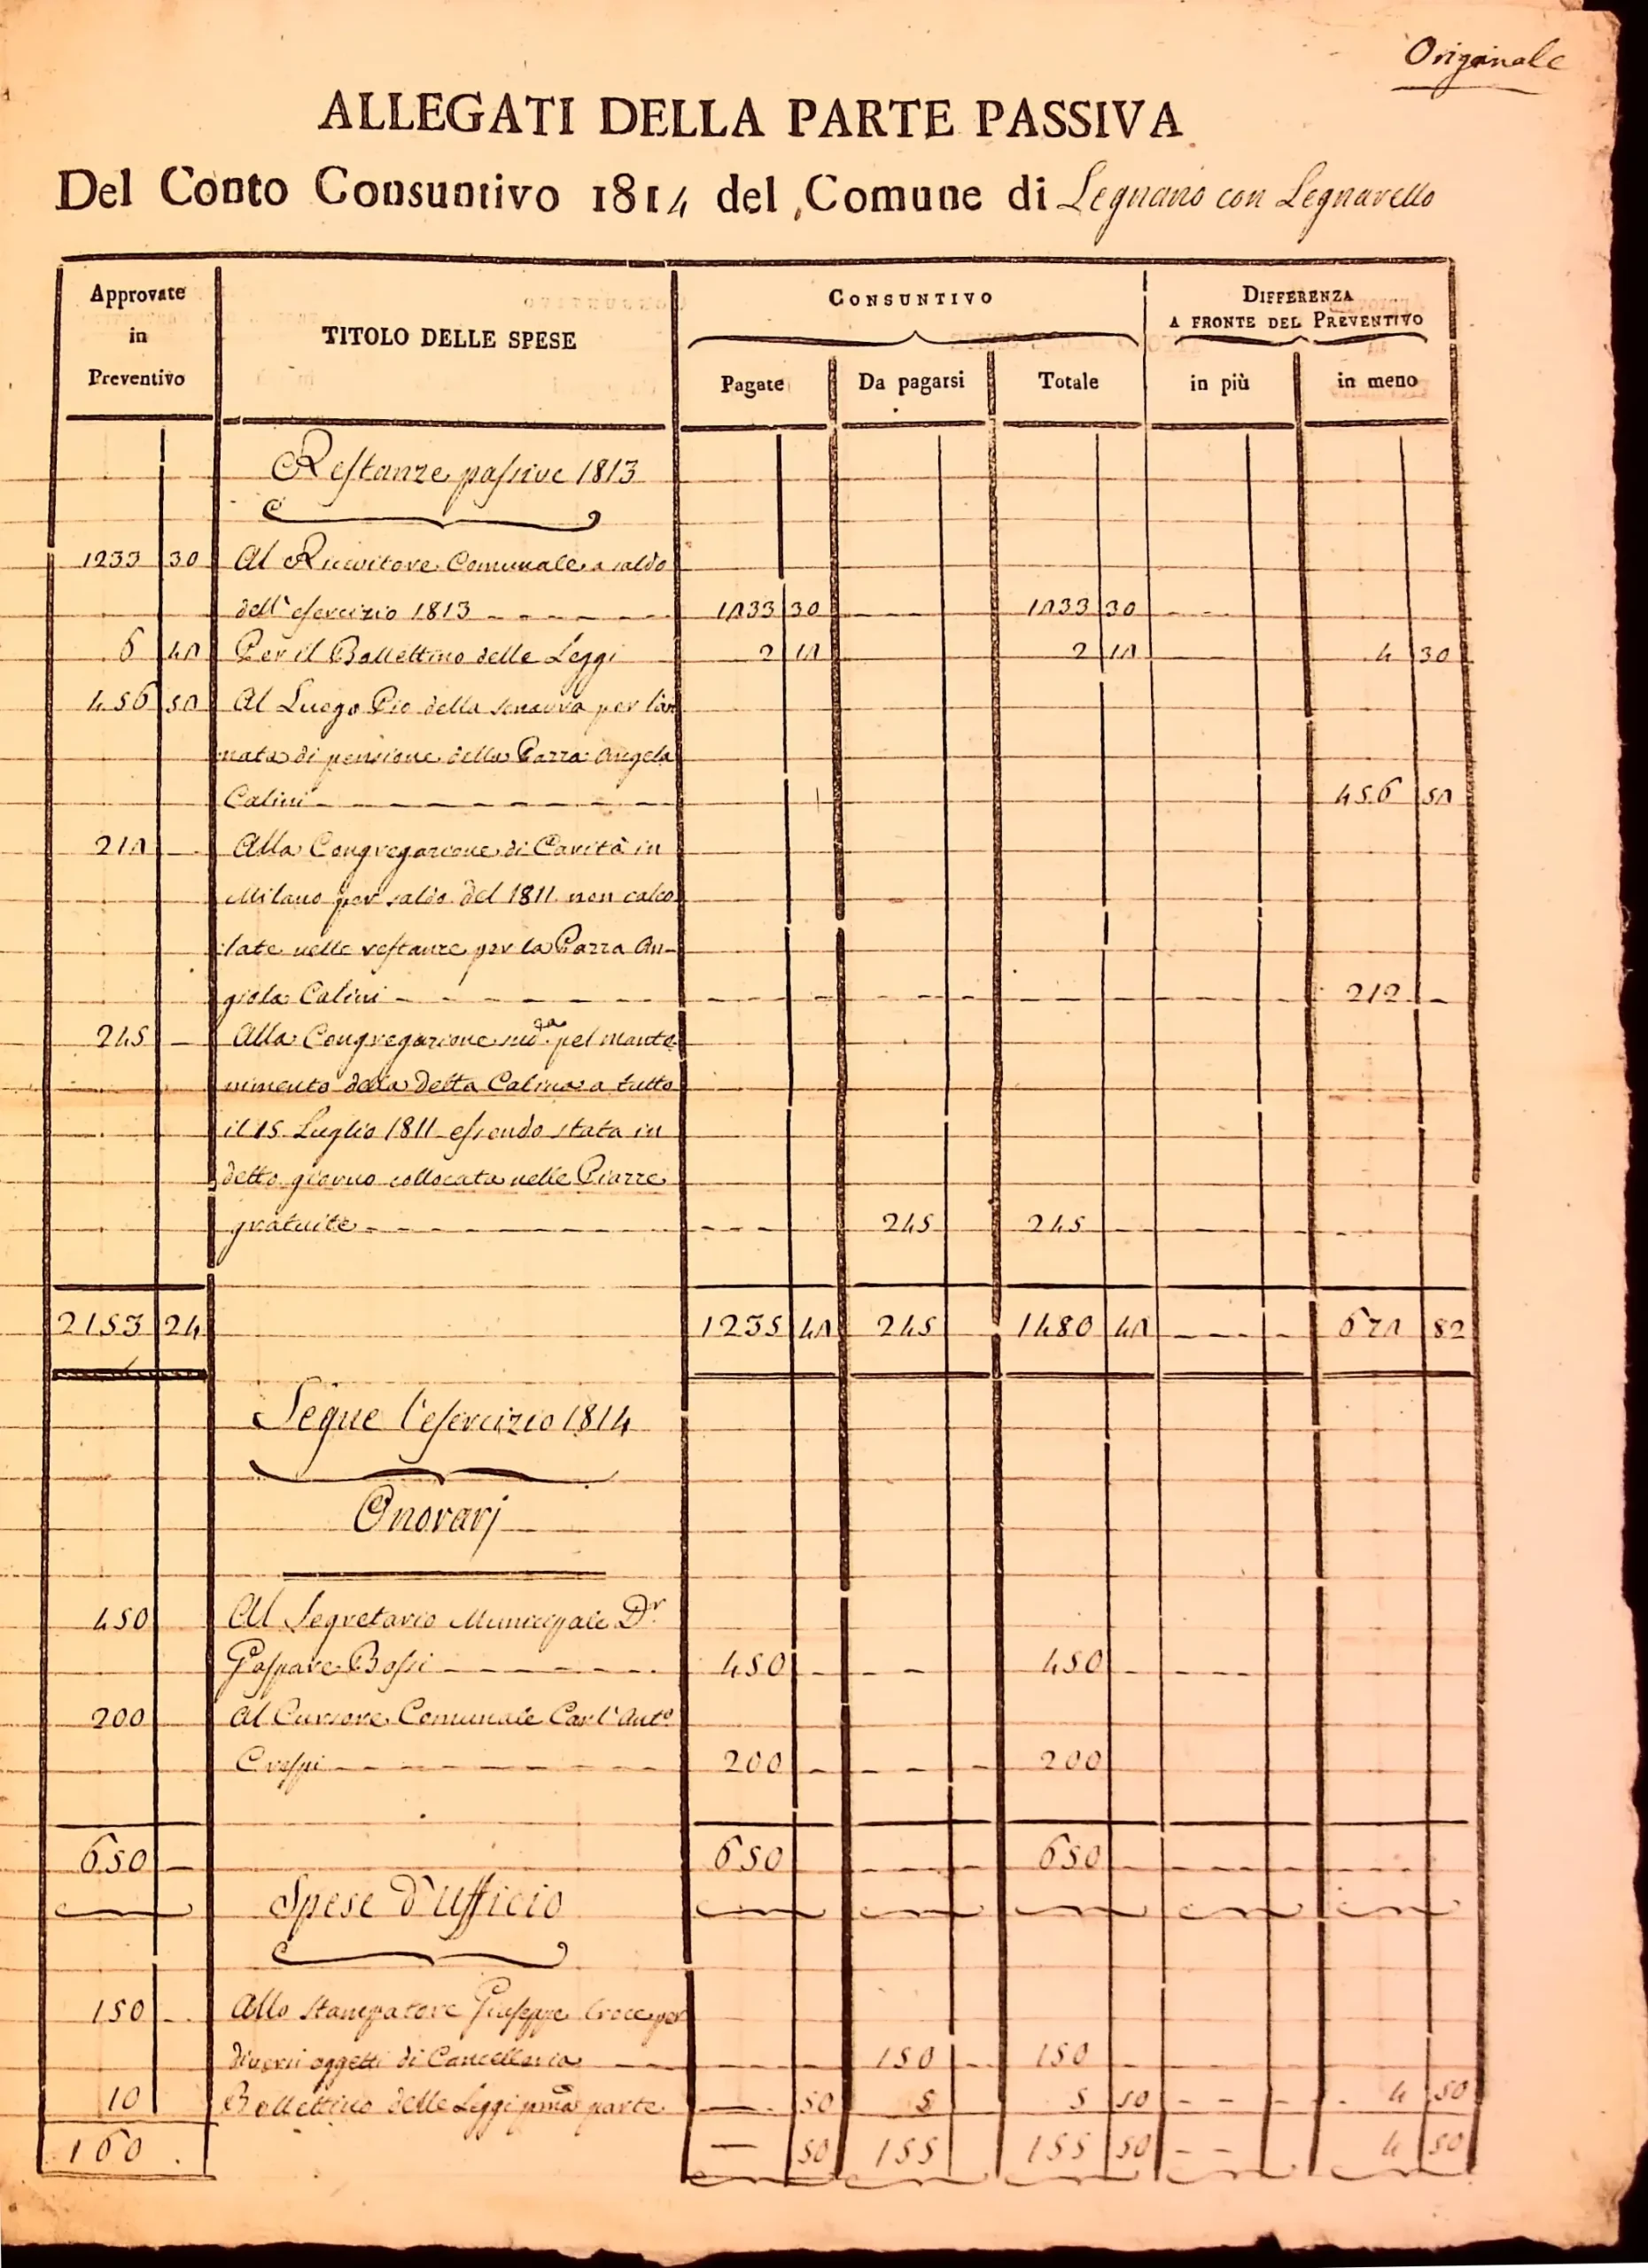 Originale
ALLEGATI DELLA PARTE PASSIVA
Del Conto Consuntivo 1814 del Comune di Legnano con Legnarello
Approvate in Preventivo
TITOLO DELLE SPESE
CONSUNTIVO
DIFFERENZA
A FRONTE DEL PREVENTIVO
Pagate Da pagarsi Totale in più in meno
Restanze passive 1813
1233 30 Al Ricevitore Comunale a saldo
dell'esercizio 1813 1233 30 1233 30
6 42 Per il Bollettino delle Leggi 2 12 2 12 4 30
456 52 Al Luogo Pio della Senavra per l'an
nata di pensione della Pazza Angela
Calini 456 52
212 Alla Congregazione di Carità in
Milano per saldo del 1811 non calco
late nelle restanze per la Pazza An-
giola Calini 212
245 Alla Congregazione sud.ª pel mante
nimento della detta Calina a tutto
il 15 Luglio 1811 essendo stata in
detto giorno collocata nelle Piazze
gratuite 245 245
2153 24 1235 42 245 1480 42 672 82
Segue l'esercizio 1814
Onorarj
450 Al Segretario Municipale Dr
Gaspare Bossi 450 450
200 Al Cursore Comunale Carl'Anto
Crespi 200 200
650 650 650
Spese d'Ufficio
150 Allo stampatore Giuseppe Croce per
diversi oggetti di Cancelleria 150 150
10 Bollettino delle Leggi pma parte 50 5 5 50 4 50
160 50 155 155 50 4 50